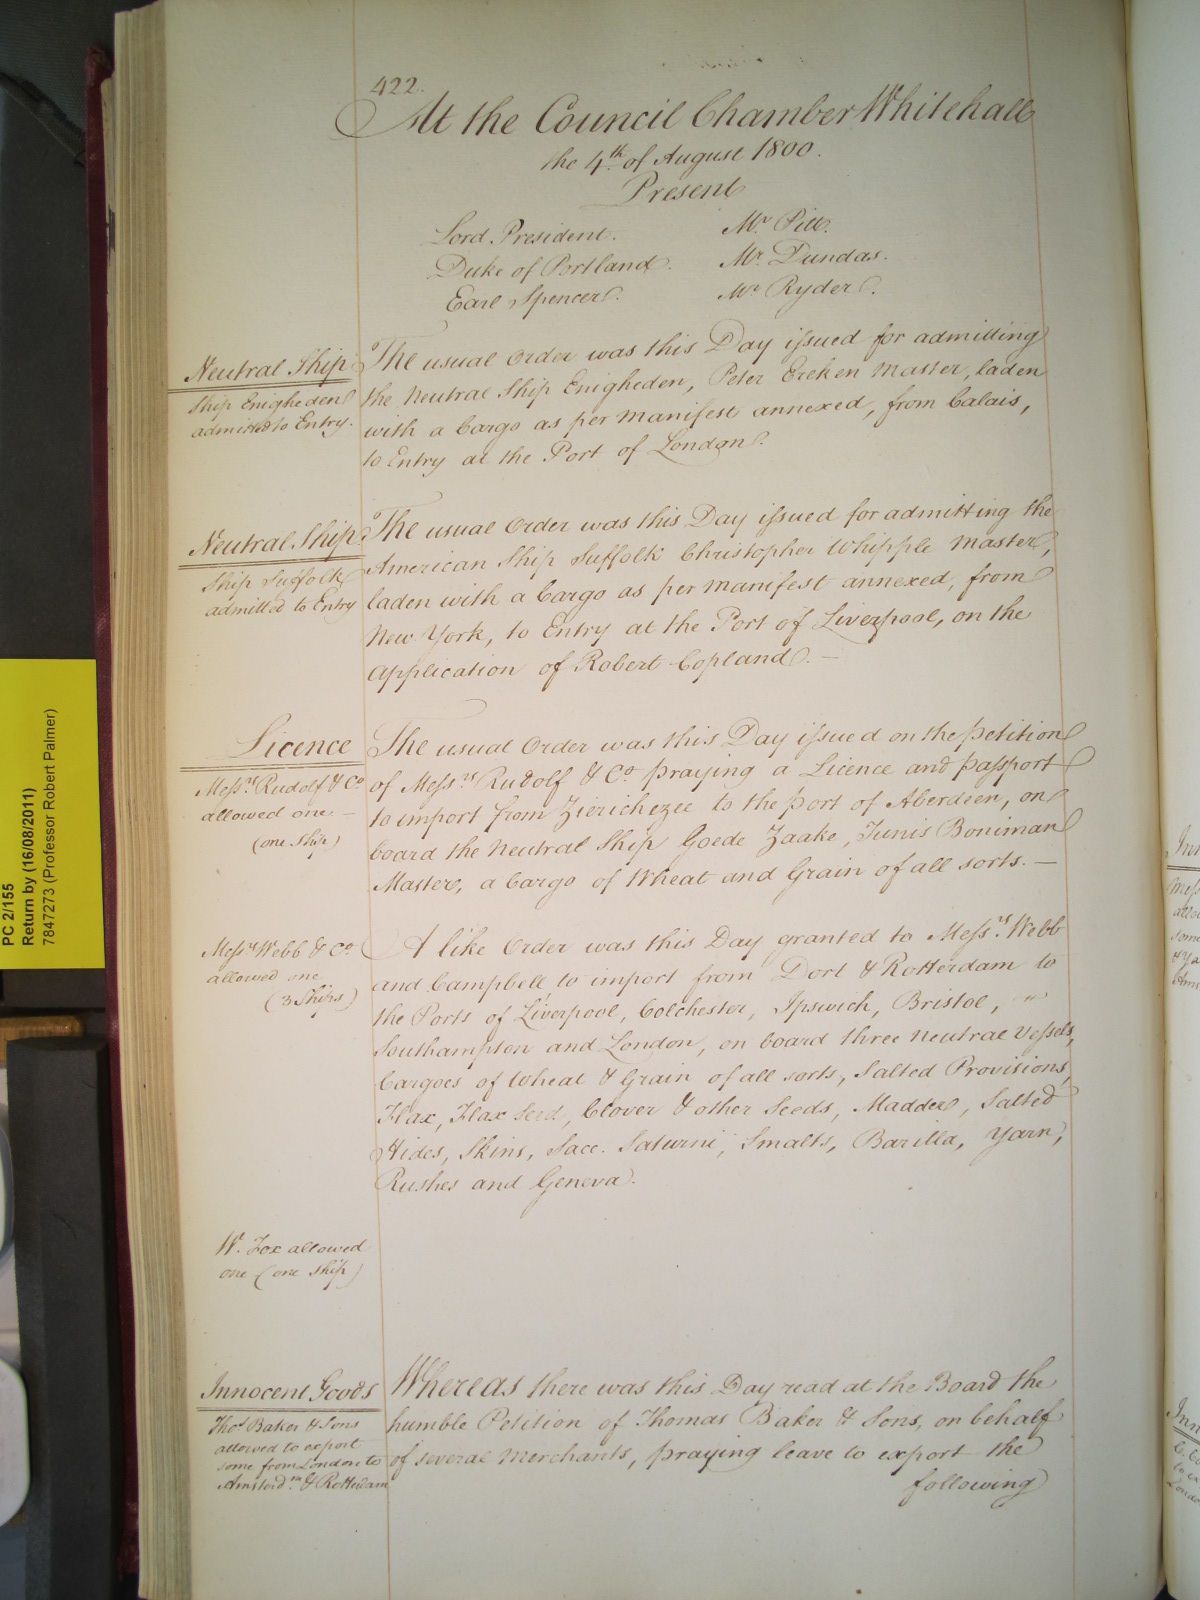 422.
At the Council Chamber Whitehall
the 4th of August 1800.
Present
Lord President. Mr Pitt.
Duke of Portland. Mr Dundas.
Earl Spencer. Mr Ryder.
Neutral Ship
Ship Enigheden
admitted to Entry.
The usual Order was this Day issued for admitting
the Neutral Ship Enigheden, Peter Ereken Master, laden
with a Cargo as per Manifest annexed, from Calais,
to Entry at the Port of London.
Neutral Ship
Ship Suffolk
admitted to Entry
The usual Order was this Day issued for admitting the
American Ship Suffolk Christopher Whipple Master,
laden with a Cargo as per Manifest annexed, from
New York, to Entry at the Port of Liverpool, on the
Application of Robert Copland. —
Licence
Messrs Rudolf & Co
allowed one —
(one Ship)
The usual Order was this Day issued on the Petition
of Messrs Rudolf & Co praying a Licence and Passport
to import from Zierichezee to the Port of Aberdeen, on
board the Neutral Ship Goede Zaake, Tunis Boniman
Master, a Cargo of Wheat and Grain of all sorts. —
Messrs Webb & Co
allowed one
(3 Ships)
A like Order was this Day granted to Messrs Webb
and Campbell to import from Dort & Rotterdam to
the Ports of Liverpool, Colchester, Ipswich, Bristol,
Southampton and London, on board three Neutral Vessels,
Cargoes of Wheat & Grain of all sorts, Salted Provisions,
Flax, Flax Seed, Clover & other Seeds, Madder, Salted
Hides, Skins, Sacc. Saturni, Smalts, Barilla, Yarn,
Rushes and Geneva.
W. Fox allowed
one (one Ship)
Innocent Goods
Thos Baker & Sons
allowed to export
some from London to
Amsterdm & Rotterdam
Whereas there was this Day read at the Board the
humble Petition of Thomas Baker & Sons, on behalf
of several Merchants, praying leave to export the
following
PC 2/155
Return by (16/08/2011)
7847273 (Professor Robert Palmer)